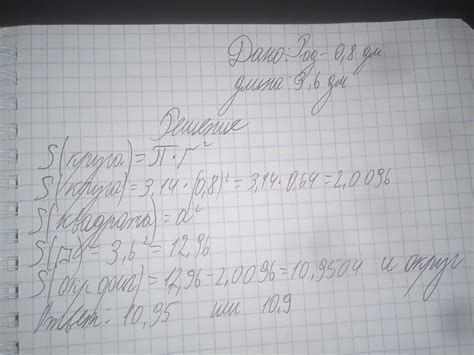 Дано: Рад- 0,8 дм
длина: 3,6 дм
Решение
S(круга)=П·r²
S(круга)=3,14·(0,8)²=3,14·0,64=2,0096
S(квадрата)=a²
S = 3,6²=12,96
S( )=12,96-2,0096=10,9504 и округ
Ответ: 10,95 или 10,9